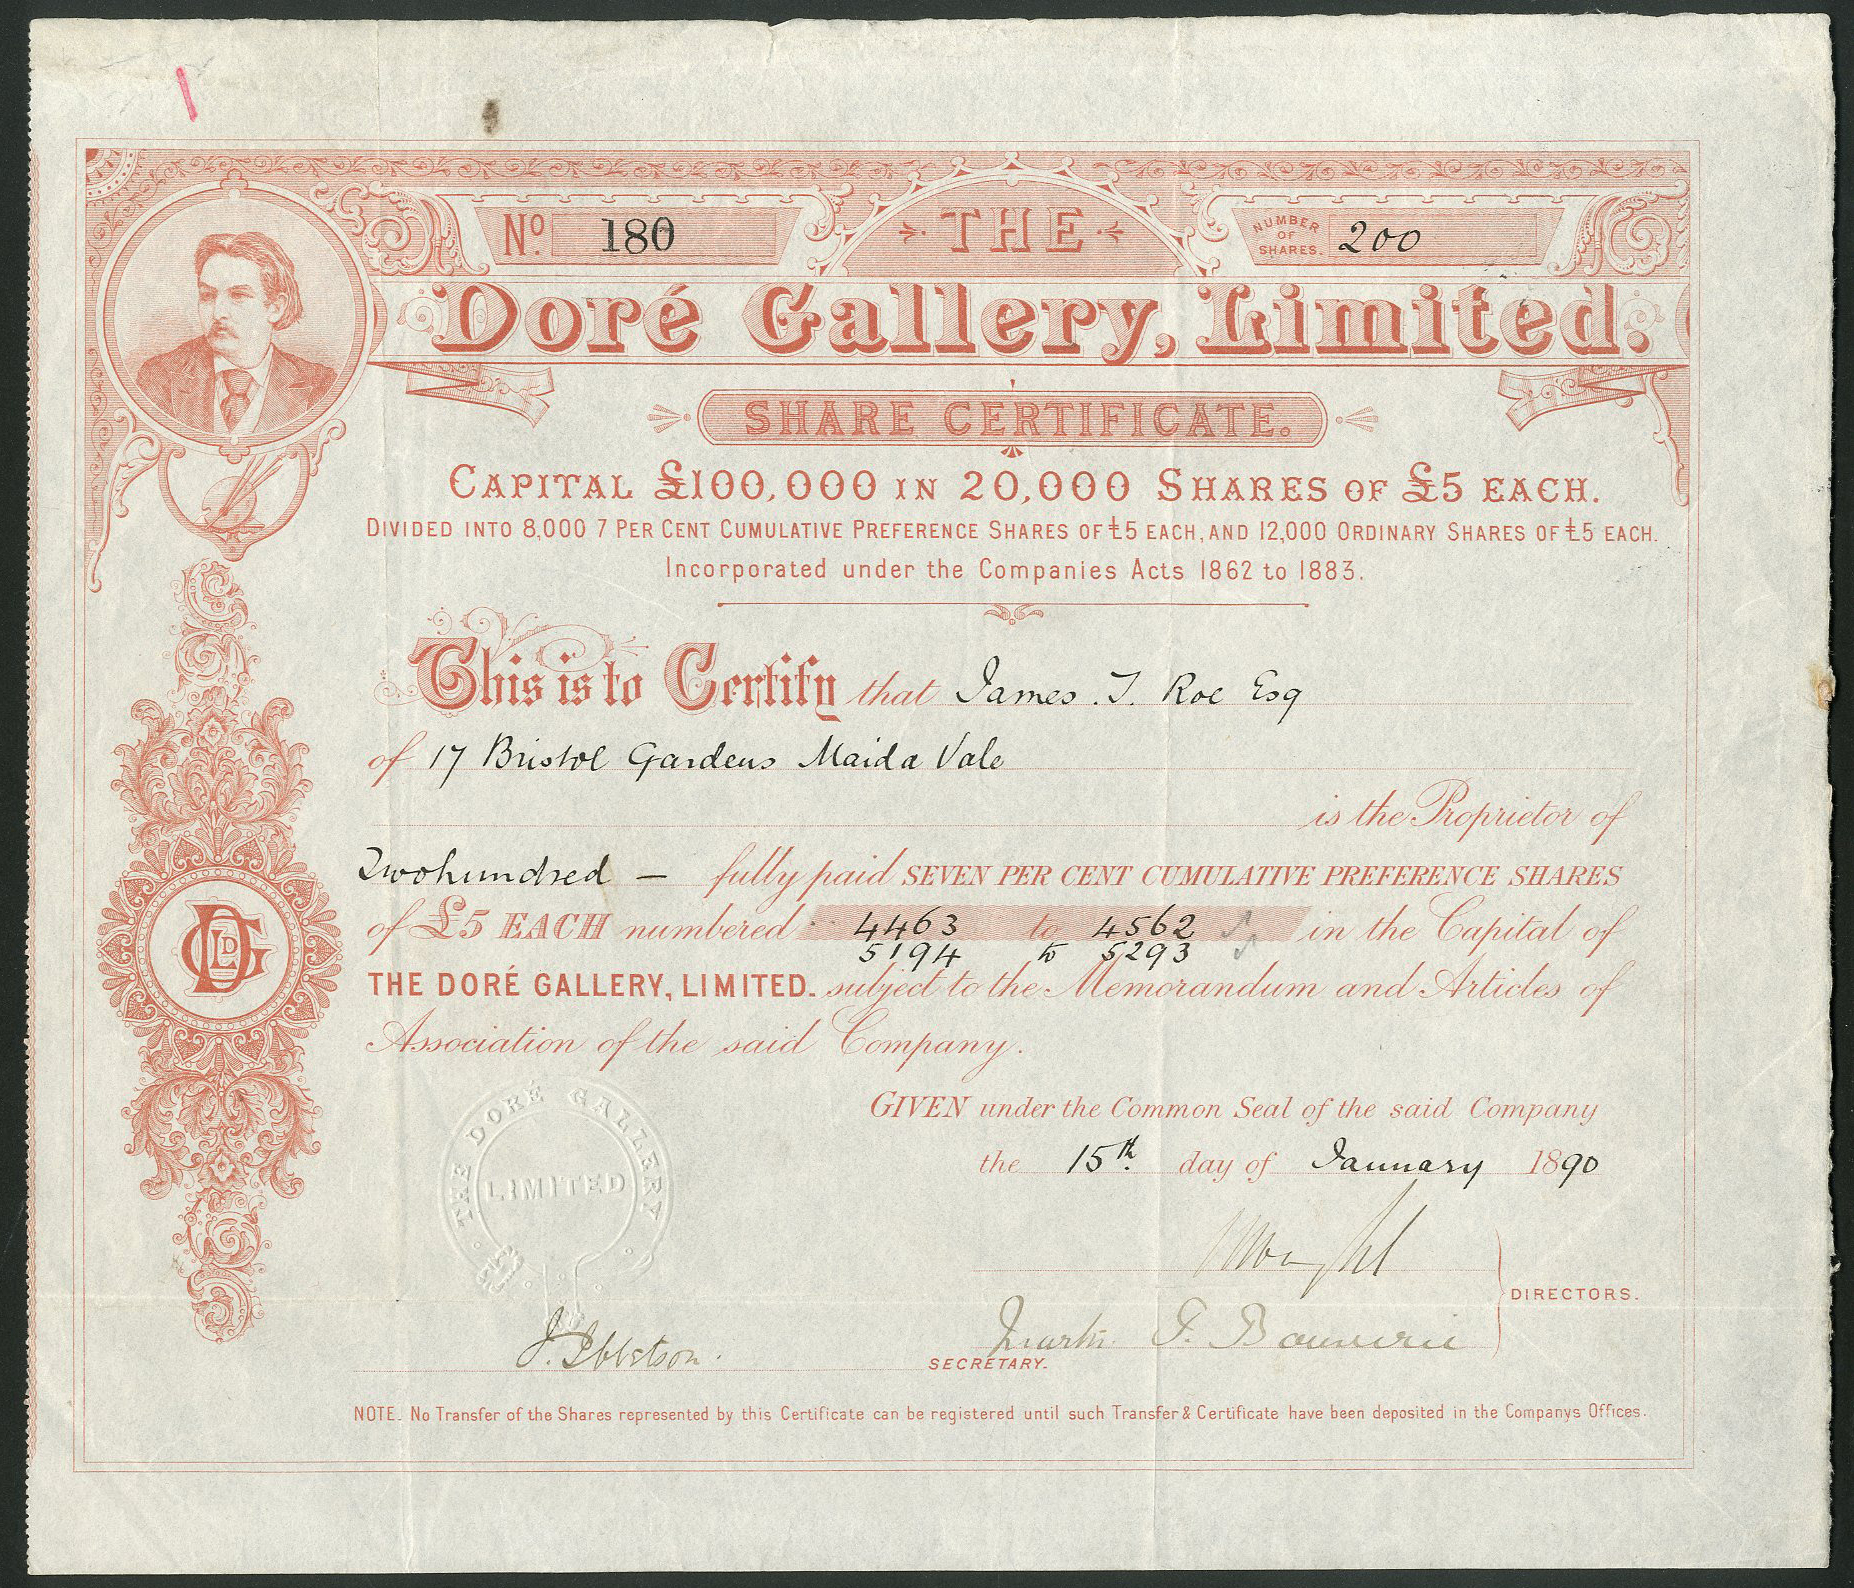 No. 180
THE
NUMBER OF SHARES. 200
Doré Gallery, Limited.
SHARE CERTIFICATE.
CAPITAL £100,000 IN 20,000 SHARES OF £5 EACH.
DIVIDED INTO 8,000 7 PER CENT CUMULATIVE PREFERENCE SHARES OF £5 EACH, AND 12,000 ORDINARY SHARES OF £5 EACH.
Incorporated under the Companies Acts 1862 to 1883.
This is to Certify that James. T. Roe Esq
of 17 Bristol Gardens Maida Vale
is the Proprietor of
Twohundred – fully paid SEVEN PER CENT CUMULATIVE PREFERENCE SHARES
of £5 EACH numbered 4463 to 4562 in the Capital of
5194 to 5293
THE DORÉ GALLERY, LIMITED. subject to the Memorandum and Articles of
Association of the said Company.
GIVEN under the Common Seal of the said Company
the 15th. day of January 1890
THE DORÉ GALLERY
LIMITED
DIRECTORS.
J. Ibbetson.
SECRETARY.
NOTE. No Transfer of the Shares represented by this Certificate can be registered until such Transfer & Certificate have been deposited in the Companys Offices.